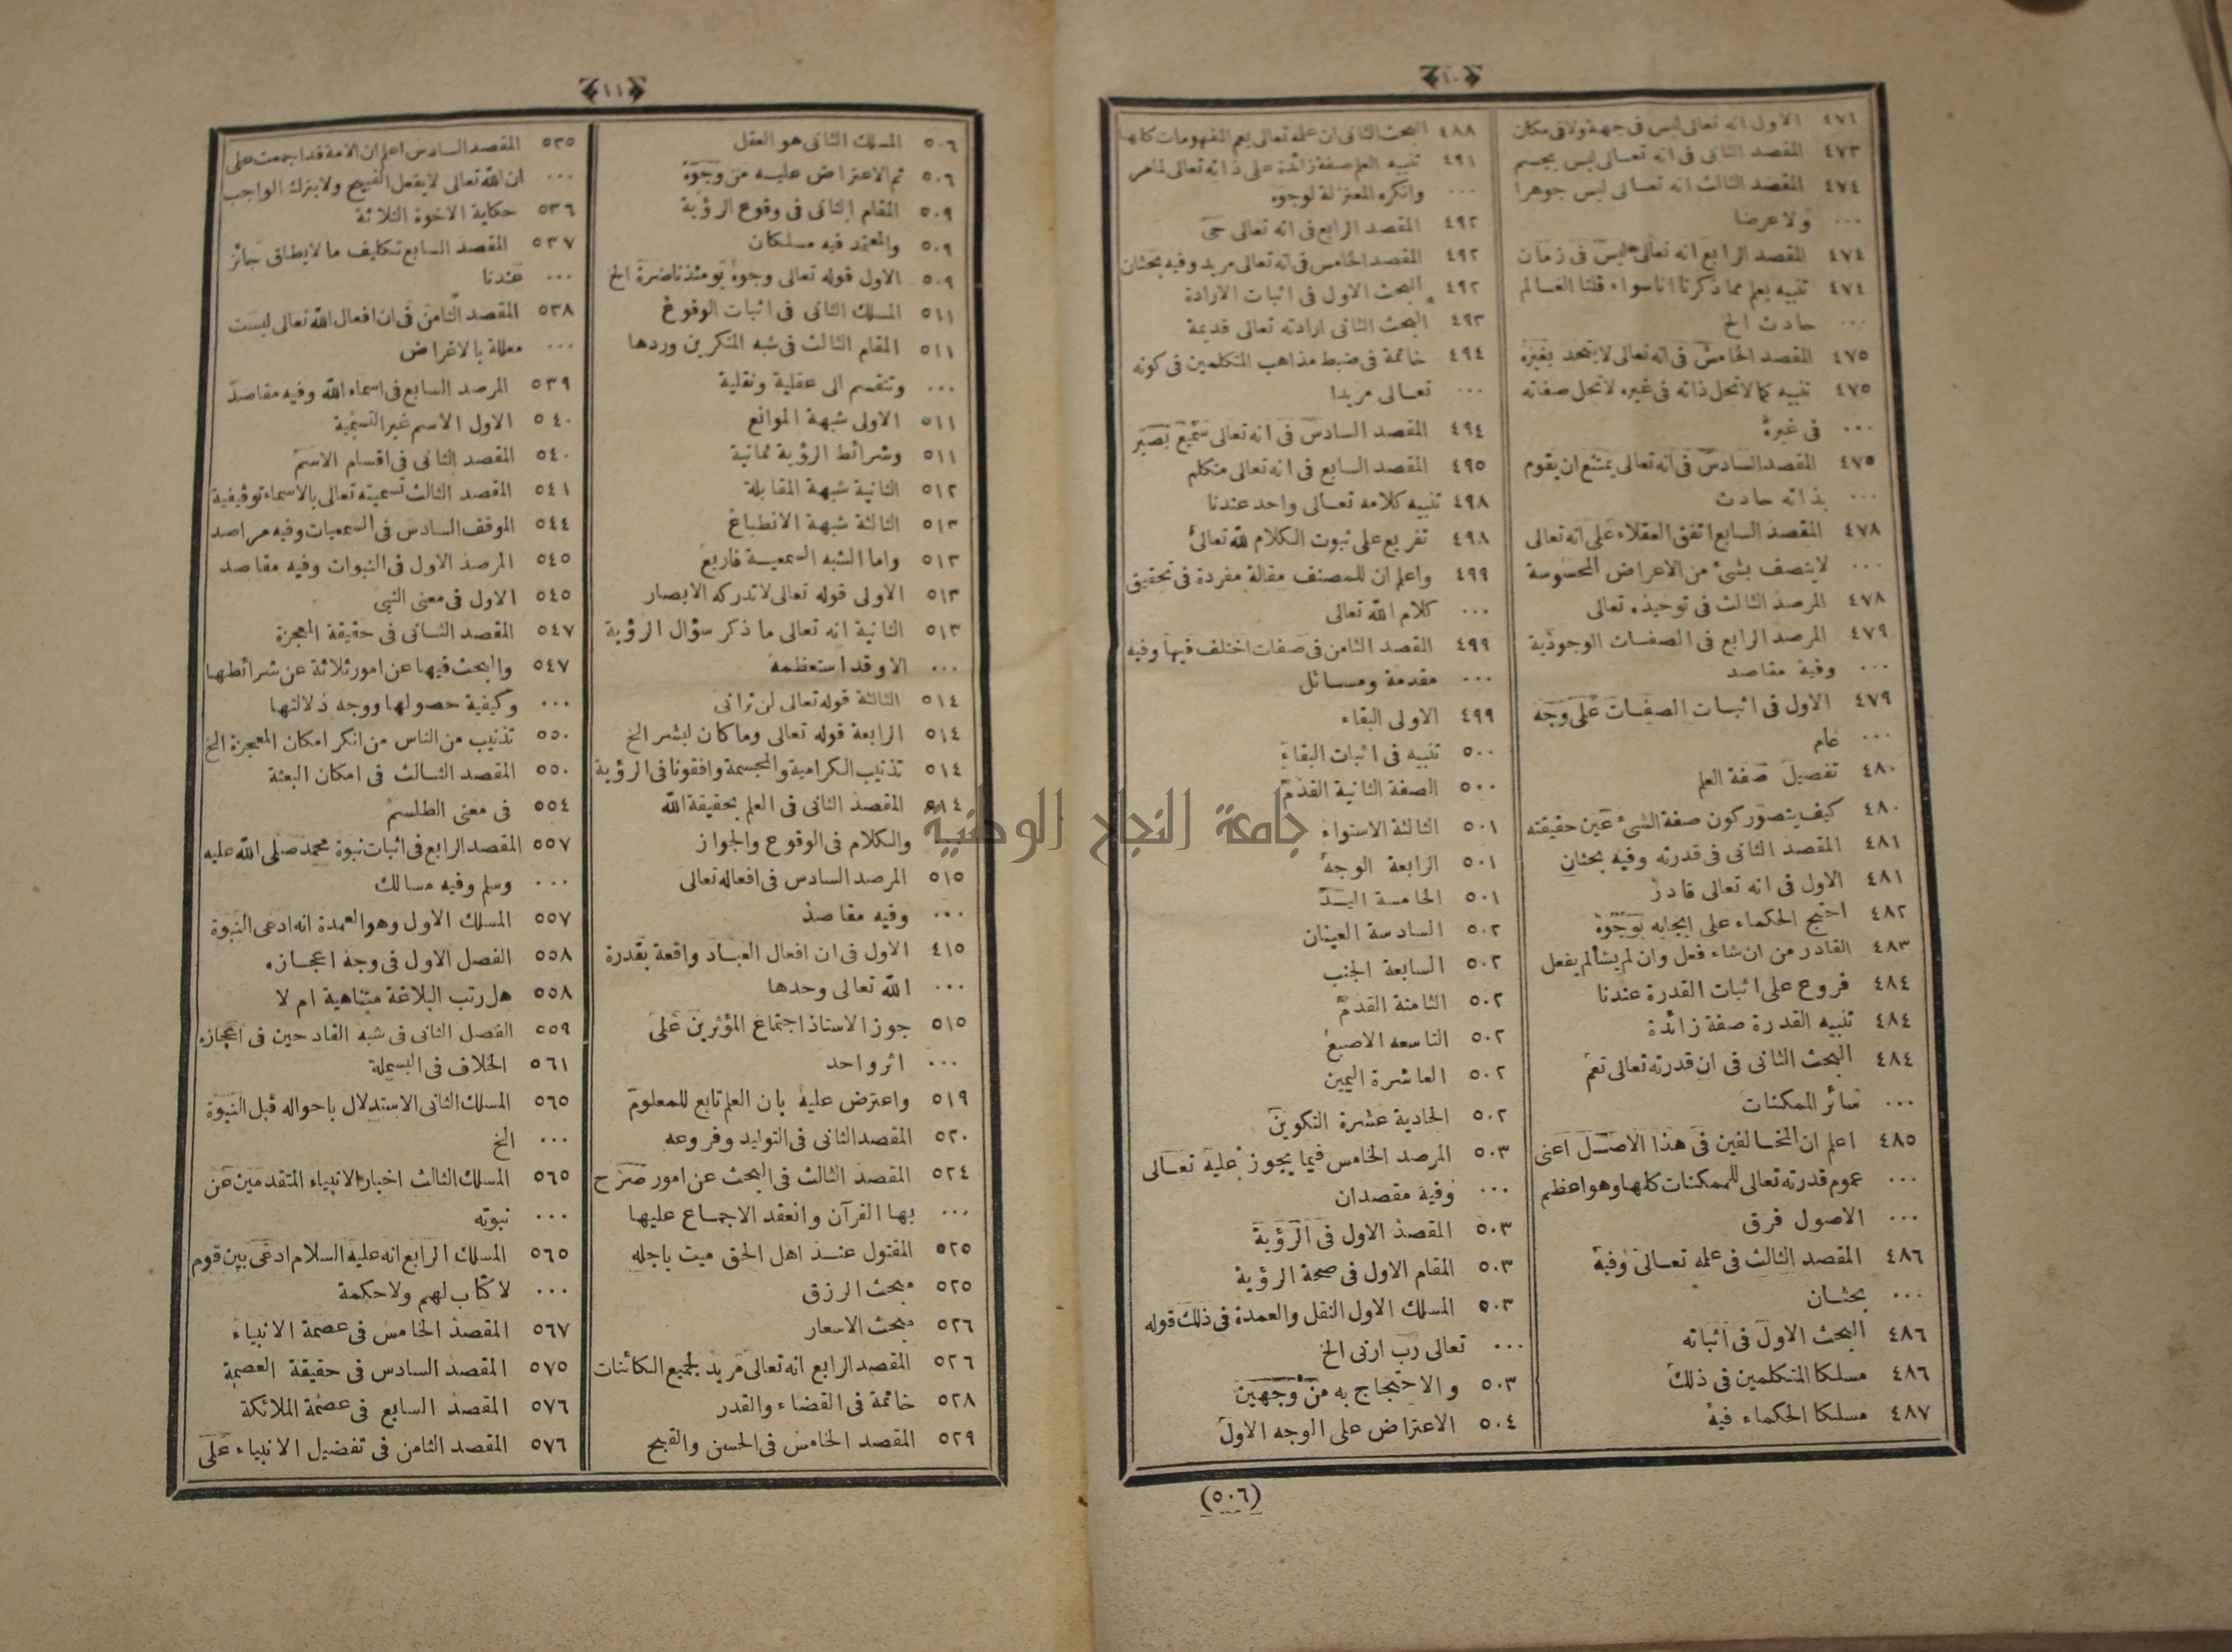 ١٠
٤٧١ الاول انه تعالى ليس فى جهة ولا فى مكان
٤٧٣ المقصد الثانى فى انه تعالى ليس بجسم
٤٧٤ المقصد الثالث انه تعالى ليس جوهرا
... ولا عرضا
٤٧٤ المقصد الرابع انه تعالى ليس فى زمان
٤٧٤ تنبيه يعلم مما ذكرنا انا سواء قلنا العالم
... حادث الخ
٤٧٥ المقصد الخامس فى انه تعالى لا يتحد بغيره
٤٧٥ تنبيه كما لا تحل ذاته فى غيره لا تحل صفاته
... فى غيره
٤٧٥ المقصد السادس فى انه تعالى يمتنع ان يقوم
... بذاته حادث
٤٧٨ المقصد السابع اتفق العقلاء على انه تعالى
... لا يتصف بشئ من الاعراض المحسوسة
٤٧٨ المرصد الثالث فى توحيده تعالى
٤٧٩ المرصد الرابع فى الصفات الوجودية
... وفيه مقاصد
٤٧٩ الاول فى اثبات الصفات على وجه
... عام
٤٨٠ تفصيل صفة العلم
٤٨٠ كيف يتصور كون صفة الشئ عين حقيقته
٤٨١ المقصد الثانى فى قدرته وفيه بحثان
٤٨١ الاول فى انه تعالى قادر
٤٨٢ احتج الحكماء على ايجابه بوجوه
٤٨٣ القادر من ان شاء فعل وان لم يشأ لم يفعل
٤٨٤ فروع على اثبات القدرة عندنا
٤٨٤ تنبيه القدرة صفة زائدة
٤٨٤ البحث الثانى فى ان قدرته تعالى تعم
... سائر الممكنات
٤٨٥ اعلم ان المخالفين فى هذا الاصل اعنى
... عموم قدرته تعالى للممكنات كلها وهو اعظم
... الاصول فرق
٤٨٦ المقصد الثالث فى علمه تعالى وفيه
... بحثان
٤٨٦ البحث الاول فى اثباته
٤٨٦ مسلكا المتكلمين فى ذلك
٤٨٧ مسلكا الحكماء فيه
٤٨٨ البحث الثانى ان علمه تعالى يعم المفهومات كلها
٤٩١ تنبيه العلم صفة زائدة على ذاته تعالى لما مر
... وانكره المعتزلة لوجوه
٤٩٢ المقصد الرابع فى انه تعالى حى
٤٩٢ المقصد الخامس فى انه تعالى مريد وفيه بحثان
٤٩٢ البحث الاول فى اثبات الارادة
٤٩٣ البحث الثانى ارادته تعالى قديمة
٤٩٤ خاتمة فى ضبط مذاهب المتكلمين فى كونه
... تعالى مريدا
٤٩٤ المقصد السادس فى انه تعالى سميع بصير
٤٩٥ المقصد السابع فى انه تعالى متكلم
٤٩٨ تنبيه كلامه تعالى واحد عندنا
٤٩٨ تفريع على ثبوت الكلام لله تعالى
٤٩٩ واعلم ان للمصنف مقالة مفردة فى تحقيق
... كلام الله تعالى
٤٩٩ المقصد الثامن فى صفات اختلف فيها وفيه
... مقدمة ومسائل
٤٩٩ الاولى البقاء
٥٠٠ تنبيه فى اثبات البقاء
٥٠٠ الصفة الثانية القدم
٥٠١ الثالثة الاستواء
٥٠١ الرابعة الوجه
٥٠١ الخامسة اليد
٥٠٢ السادسة العينان
٥٠٢ السابعة الجنب
٥٠٢ الثامنة القدم
٥٠٢ التاسعه الاصبع
٥٠٢ العاشرة اليمين
٥٠٢ الحادية عشرة التكوين
٥٠٣ المرصد الخامس فيما يجوز عليه تعالى
... وفيه مقصدان
٥٠٣ المقصد الاول فى الرؤية
٥٠٣ المقام الاول فى صحة الرؤية
٥٠٣ المسلك الاول النقل والعمدة فى ذلك قوله
... تعالى رب ارنى الخ
٥٠٣ والاحتجاج به من وجهين
٥٠٤ الاعتراض على الوجه الاول
(٥٠٦)
١١
٥٠٦ المسلك الثانى هو العقل
٥٠٦ ثم الاعتراض عليه من وجوه
٥٠٩ المقام الثانى فى وقوع الرؤية
٥٠٩ والمعتمد فيه مسلكان
٥٠٩ الاول قوله تعالى وجوه يومئذ ناضرة الخ
٥١١ المسلك الثانى فى اثبات الوقوع
٥١١ المقام الثالث فى شبه المنكرين وردها
... وتنقسم الى عقلية ونقلية
٥١١ الاولى شبهة الموانع
٥١١ وشرائط الرؤية ثمانية
٥١٢ الثانية شبهة المقابلة
٥١٣ الثالثة شبهة الانطباع
٥١٣ واما الشبه السمعية فاربع
٥١٣ الاولى قوله تعالى لا تدركه الابصار
٥١٣ الثانية انه تعالى ما ذكر سؤال الرؤية
... الا وقد استعظمه
٥١٤ الثالثة قوله تعالى لن ترانى
٥١٤ الرابعة قوله تعالى وما كان لبشر الخ
٥١٤ تذنيب الكرامية والمجسمة وافقونا فى الرؤية
٥١٤ المقصد الثانى فى العلم بحقيقة الله
والكلام فى الوقوع والجواز
٥١٥ المرصد السادس فى افعاله تعالى
... وفيه مقاصد
٤١٥ الاول فى ان افعال العباد واقعة بقدرة
... الله تعالى وحدها
٥١٥ جوز الاستاذ اجتماع المؤثرين على
... اثر واحد
٥١٩ واعترض عليه بان العلم تابع للمعلوم
٥٢٠ المقصد الثانى فى التوليد وفروعه
٥٢٤ المقصد الثالث فى البحث عن امور صرح
... بها القرآن وانعقد الاجماع عليها
٥٢٥ المقتول عند اهل الحق ميت باجله
٥٢٥ مبحث الرزق
٥٢٦ مبحث الاسعار
٥٢٦ المقصد الرابع انه تعالى مريد لجميع الكائنات
٥٢٨ خاتمة فى القضاء والقدر
٥٢٩ المقصد الخامس فى الحسن والقبح
٥٣٥ المقصد السادس اعلم ان الامة قد اجمعت على
... ان الله تعالى لا يفعل القبيح ولا يترك الواجب
٥٣٦ حكاية الاخوة الثلاثة
٥٣٧ المقصد السابع تكليف ما لا يطاق جائز
... عندنا
٥٣٨ المقصد الثامن فى ان افعال الله تعالى ليست
... معللة بالاغراض
٥٣٩ المرصد السابع فى اسماء الله وفيه مقاصد
٥٤٠ الاول الاسم غير التسمية
٥٤٠ المقصد الثانى فى اقسام الاسم
٥٤١ المقصد الثالث تسميته تعالى بالاسماء توقيفية
٥٤٤ الموقف السادس فى السمعيات وفيه مراصد
٥٤٥ المرصد الاول فى النبوات وفيه مقاصد
٥٤٥ الاول فى معنى النبى
٥٤٧ المقصد الثانى فى حقيقة المعجزة
٥٤٧ والبحث فيها عن امور ثلاثة عن شرائطها
... وكيفية حصولها ووجه دلالتها
٥٥٠ تذنيب من الناس من انكر امكان المعجزة الخ
٥٥٠ المقصد الثالث فى امكان البعثة
٥٥٤ فى معنى الطلسم
٥٥٧ المقصد الرابع فى اثبات نبوة محمد صلى الله عليه
... وسلم وفيه مسالك
٥٥٧ المسلك الاول وهو العمدة انه ادعى النبوة
٥٥٨ الفصل الاول فى وجه اعجازه
٥٥٨ هل رتب البلاغة متناهية ام لا
٥٥٩ الفصل الثانى فى شبه القادحين فى اعجازه
٥٦١ الخلاف فى البسملة
٥٦٥ المسلك الثانى الاستدلال باحواله قبل النبوة
... الخ
٥٦٥ المسلك الثالث اخبار الانبياء المتقدمين عن
... نبوته
٥٦٥ المسلك الرابع انه عليه السلام ادعى بين قوم
... لا كتاب لهم ولا حكمة
٥٦٧ المقصد الخامس فى عصمة الانبياء
٥٧٥ المقصد السادس فى حقيقة العصمة
٥٧٦ المقصد السابع فى عصمة الملائكة
٥٧٦ المقصد الثامن فى تفضيل الانبياء على
جامعة النجاح الوطنية